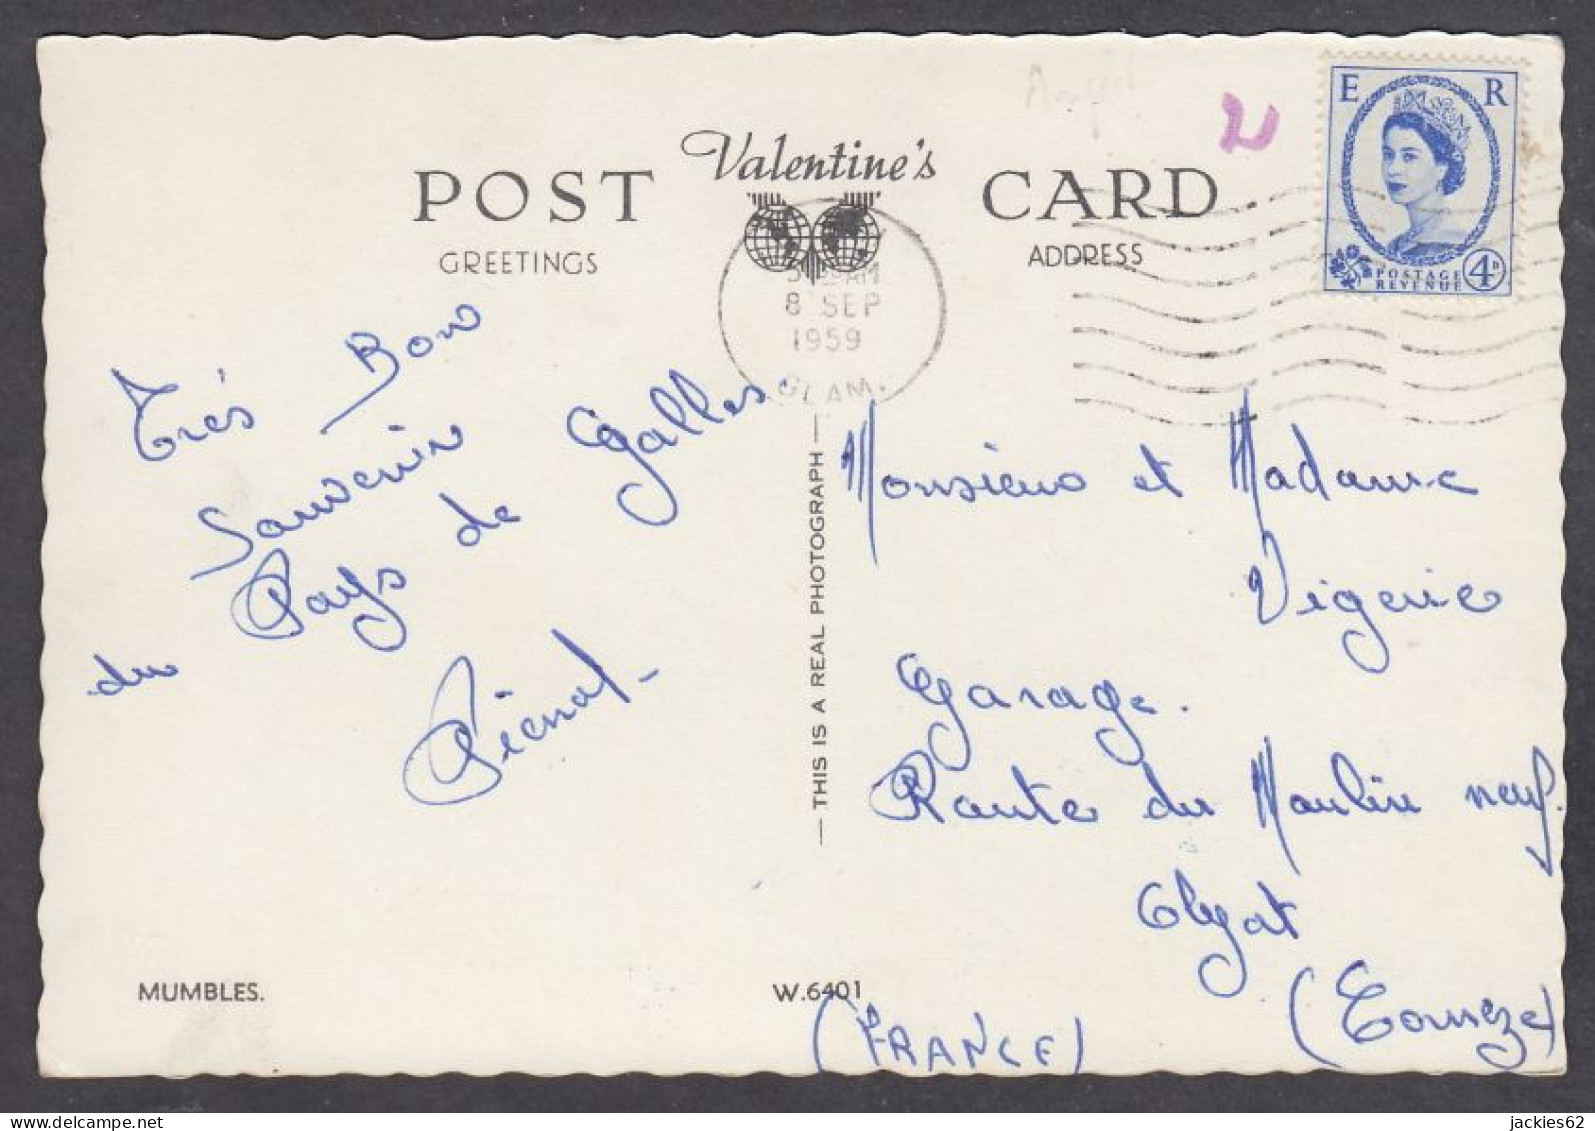 POST Valentine's CARD
GREETINGS
ADDRESS
E R
POSTAGE
REVENUE
4D
AM
8 SEP
1959
GLAM.
Trés Bon
Souvenir
du Pays de Galles
— THIS IS A REAL PHOTOGRAPH —
Monsieur et Madame
Vigerie
Garage.
Route du Moulin neuf.
(Corrèze)
(FRANCE)
MUMBLES.
W.6401
delcampe.net
jackies62